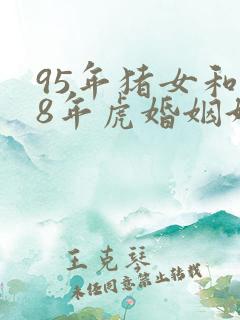 95年猪女和
8年虎婚姻
王克琴
未经同意禁止转载